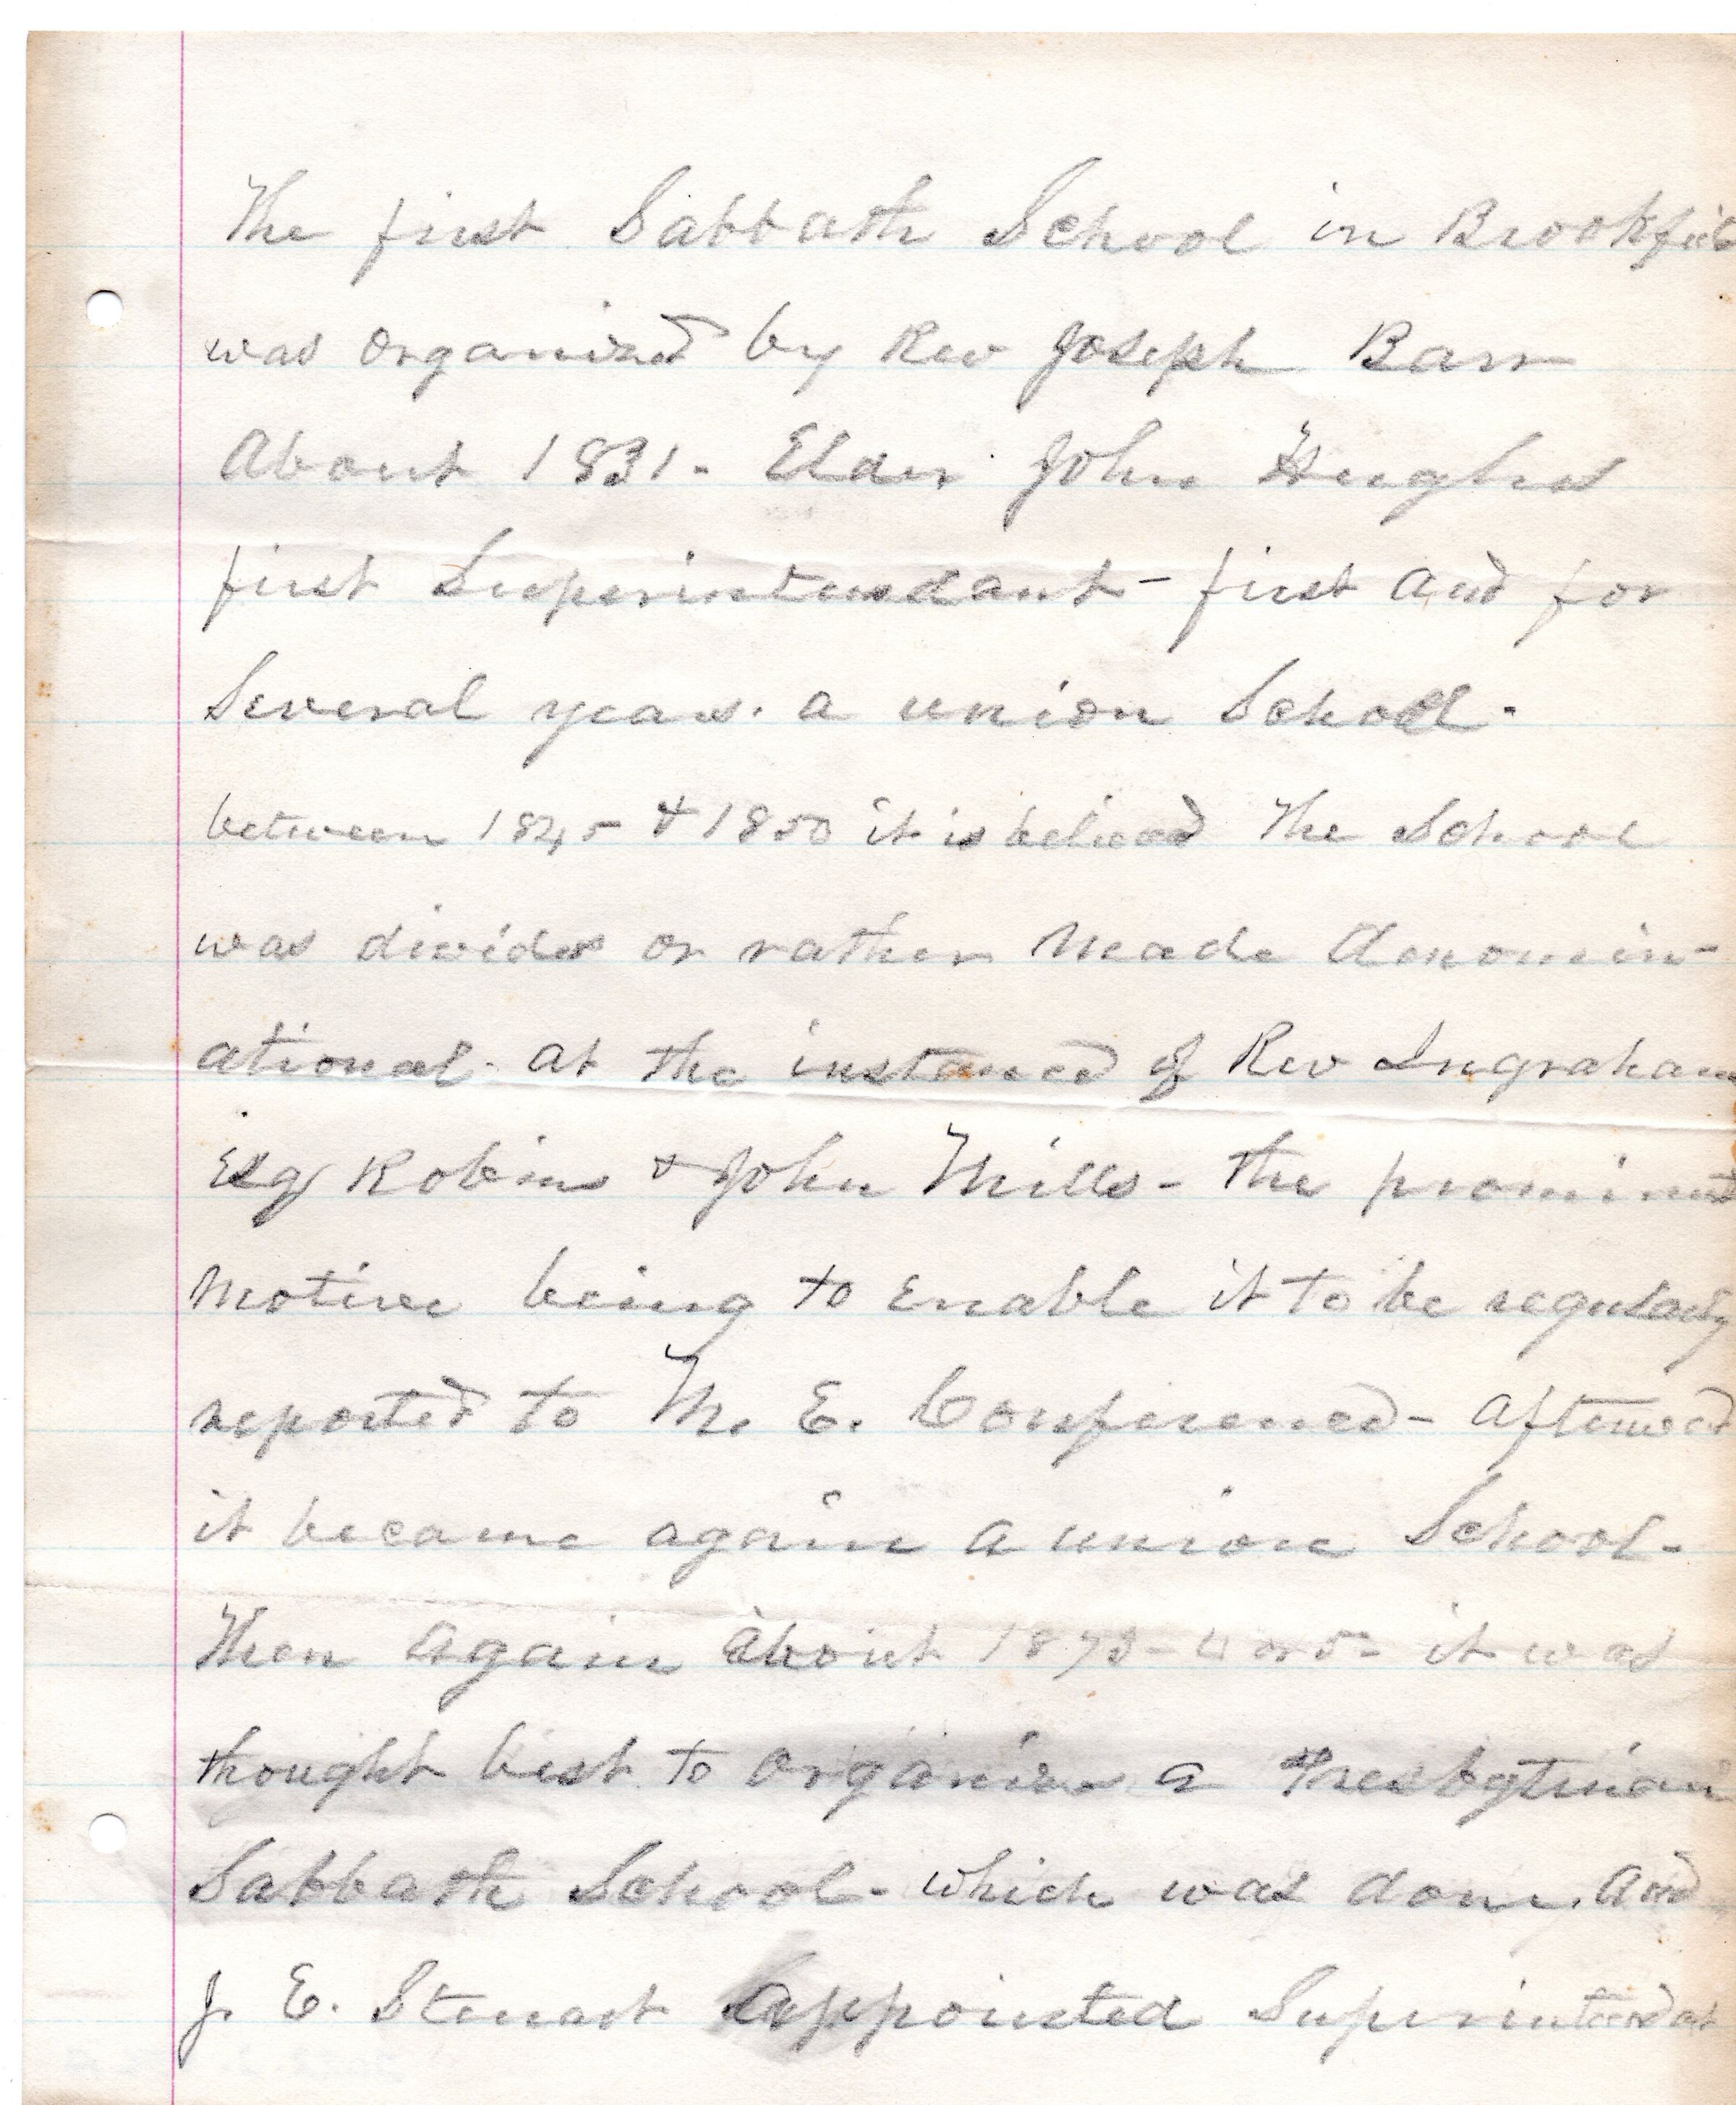 The first Sabbath School in Brookfield
was organized by Rev Joseph Barr
About 1831- Elder John Hughes
first Superintendant - first and for
Several years. a union School.
between 1845 & 1850 it is believed The School
was divided or rather made denomin-
ational. at the instance of Rev Ingraham
Esq Robins & John Mills - the prominent
motive being to enable it to be regularly
reported to M. E. Conference - afterward
it became again a union School-
Then again about 1873-4 or 5- it was
thought best to organize a Presbyterian
Sabbath School - which was done. And
J. E. Stewart appointed Superintendat